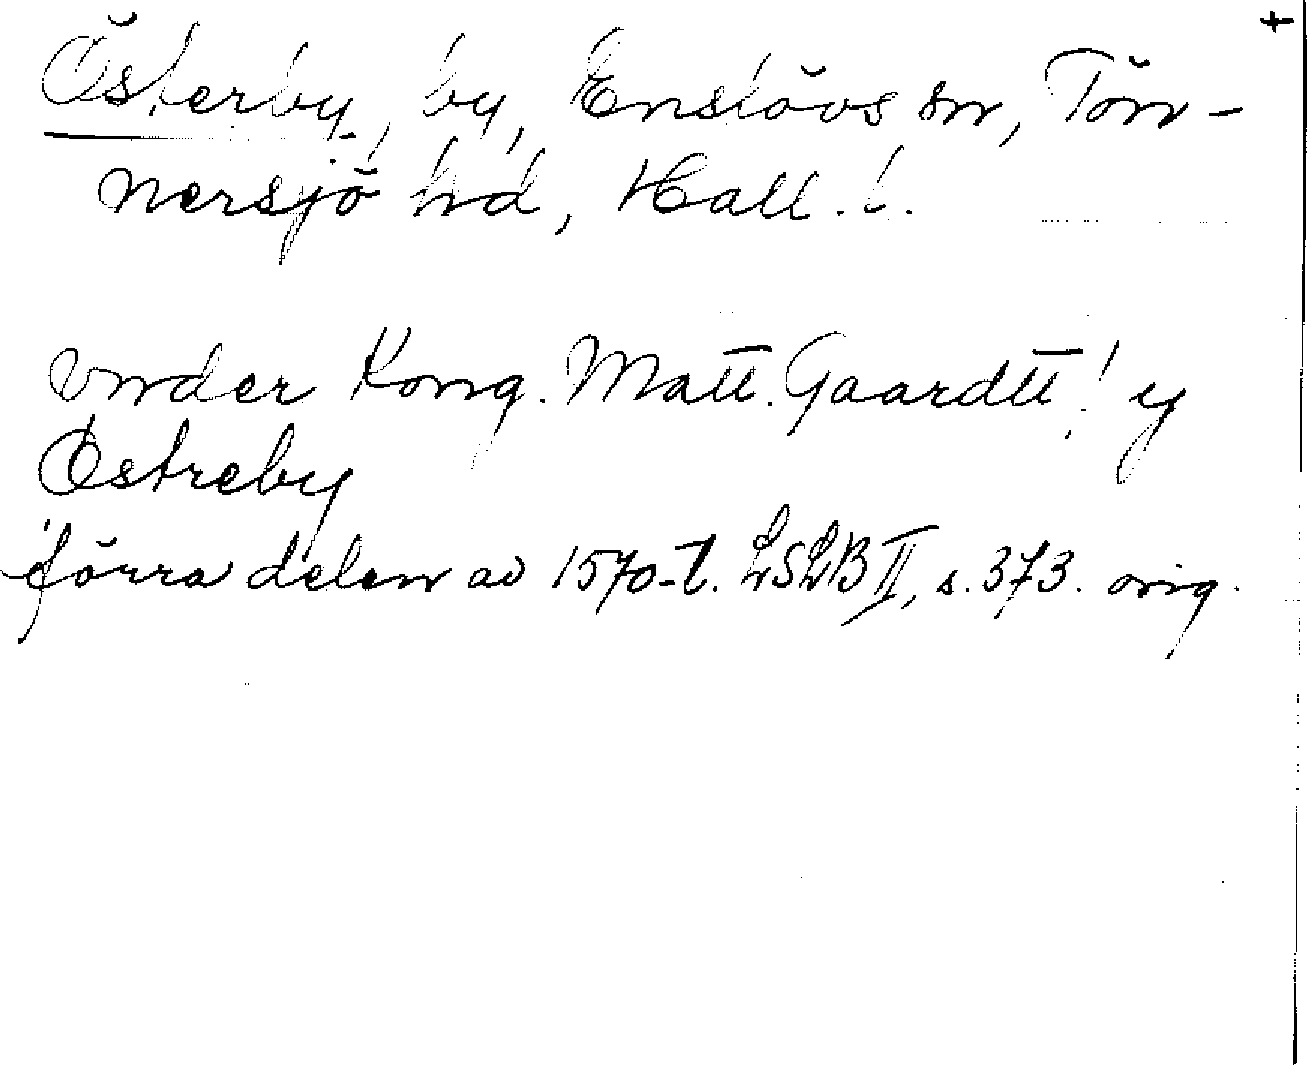 +
Österby, by, Enslövs sn, Tön-
nersjö hd, Hall. l.
vnder Kong. Matt. Gaardtt! y
Østreby
förra delen av 1570-t. LSLB II, s. 373. orig.